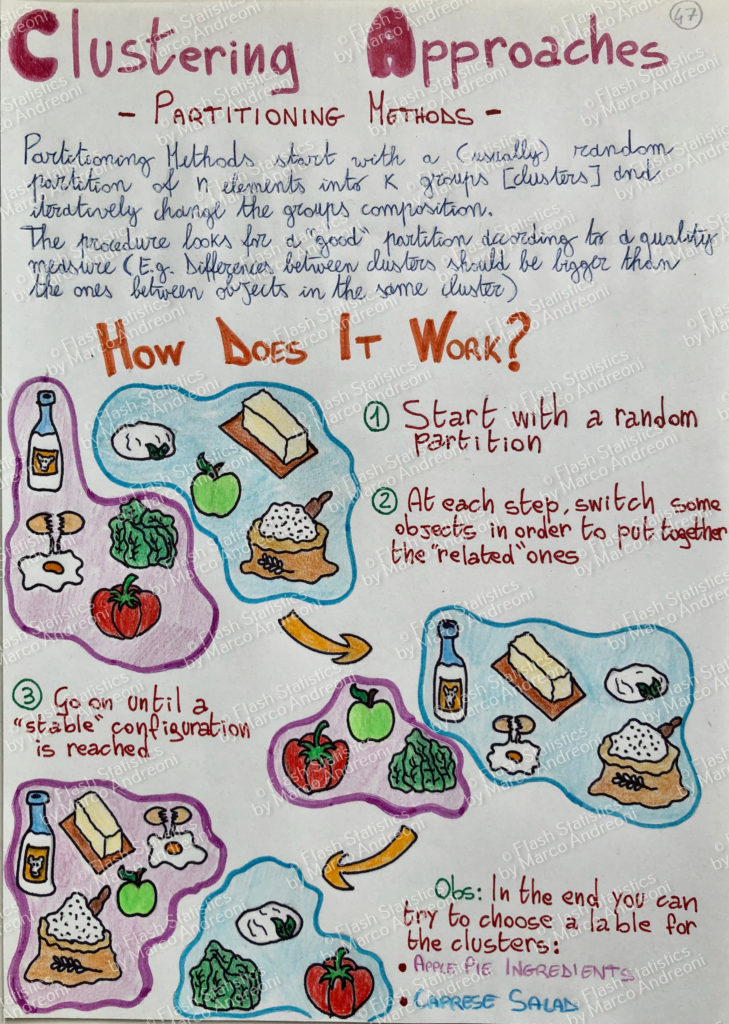 47
Clustering Approaches
- PARTITIONING METHODS -
Partitioning Methods start with a (usually) random
partition of n elements into K groups [clusters] and
iteratively change the groups composition.
The procedure looks for a "good" partition according to a quality
measure (E.g. Differences between clusters should be bigger than
the ones between objects in the same cluster)
HOW DOES IT WORK?
1 Start with a random
partition
2 At each step, switch some
objects in order to put together
the "related" ones
3 Go on until a
"stable" configuration
is reached
Obs: In the end you can
try to choose a lable for
the clusters:
• APPLE PIE INGREDIENTS
• CAPRESE SALAD
© Flash Statistics
by Marco Andreoni